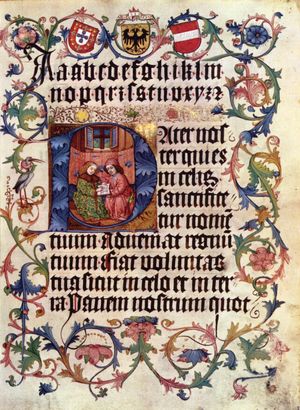 Aaabcdefghiklm
nopqrrsstuvxyz
Pater nos
ter qui es
in celis
sanctifice
tur nomen
tuum Adveniat regnu
tuum Fiat voluntas
tua sicut in celo et in ter
ra Panem nostrum quot